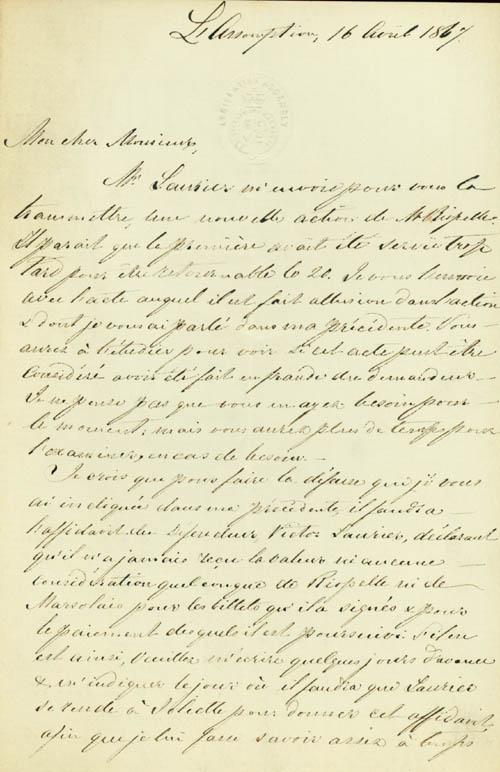 L'Assomption, 16 Août 1867.
LEGISLATIVE ASSEMBLY
Mon cher Monsieur,
Mr. Laurier m'envoie pour vous la
transmettre, une nouvelle action de Mr Riopelle.
Il parait que la première avait été servie trop
tard pour être retournable le 20. Je vous l'envoie
avec l'acte auquel il est fait allusion dans l'action
& dont je vous ai parlé dans ma précédente. Vous
aurez à l'étudier pour voir si cet acte peut être
considéré avoir été fait en fraude du demandeur.
Je ne pense pas que vous en ayez besoin pour
le moment; mais vous aurez plus de temps pour
l'examiner, en cas de besoin.
Je crois que pour faire la défense que je vous
ai indiquée dans ma précédente, il faudra
l'affidavit du Défendeur, Victor Laurier, déclarant
qu'il n'a jamais reçu la valeur ni aucune
considération quelconque de Riopelle ni de
Marsolais pour les billets qu'il a signés & pour
le paiement desquels il est poursuivi. S'il en
est ainsi, veuillez m'écrire quelques jours d'avance
& m'indiquer le jour où il faudra que Laurier
se rende à Joliette pour donner cet affidavit,
afin que je lui fasse savoir assez à temps